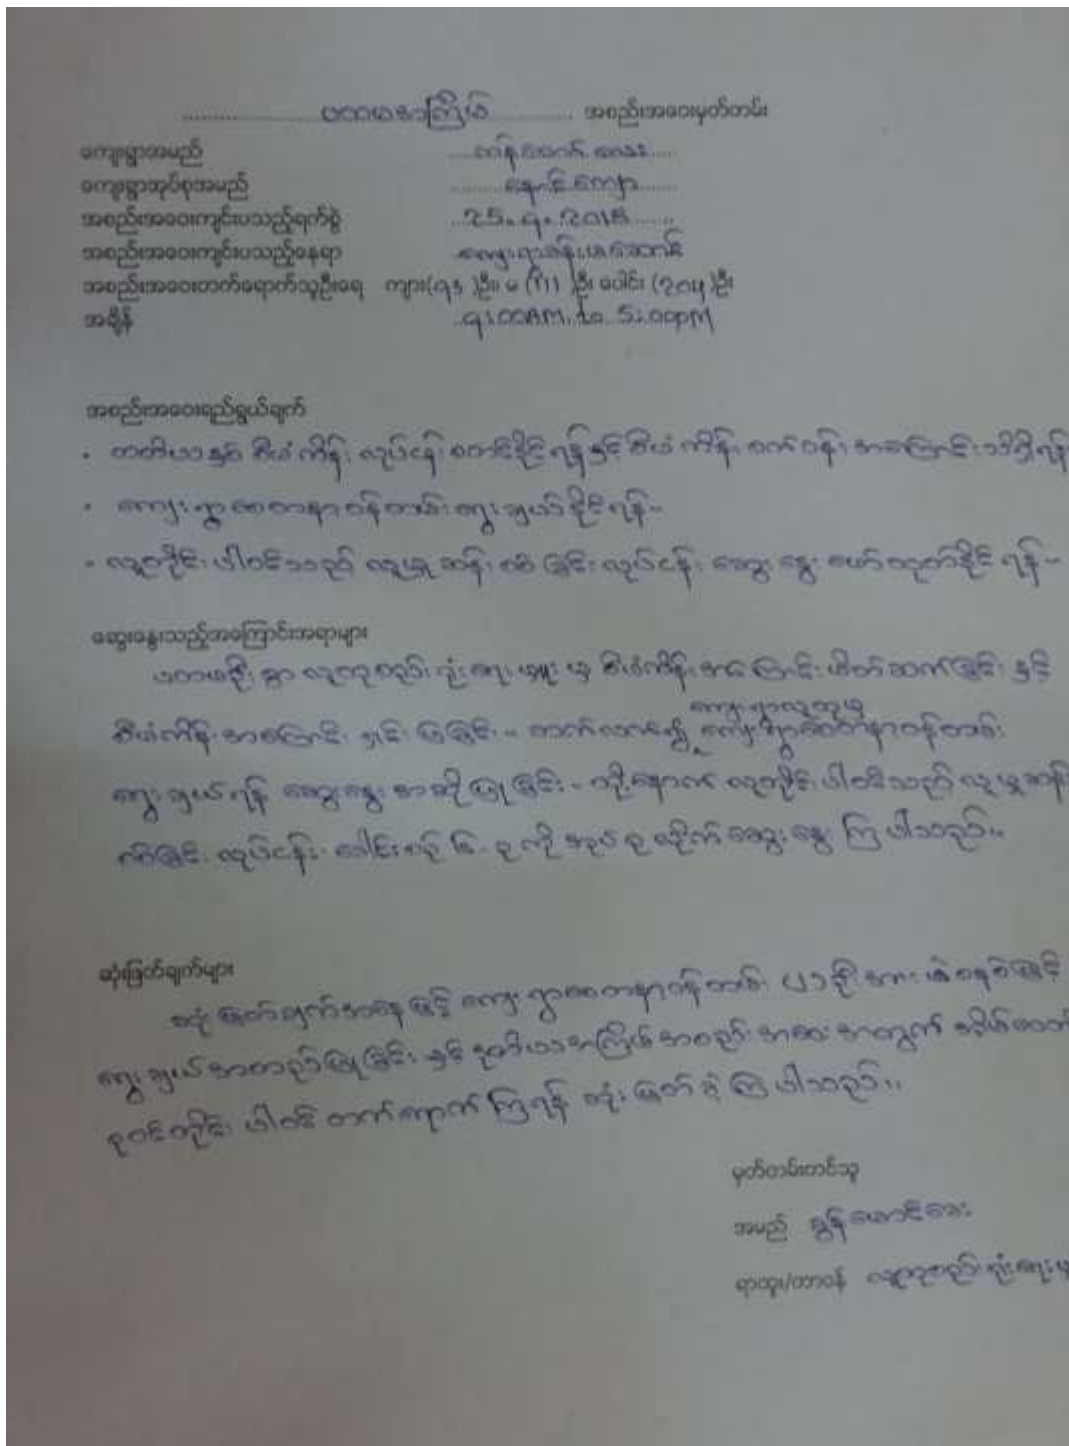 ပထမအကြိမ် အစည်းအဝေးမှတ်တမ်း
ကျေးရွာအမည်
ကျေးရွာအုပ်စုအမည် နောင်ကျော
အစည်းအဝေးကျင်းပသည့်ရက်စွဲ 25.9.2018
အစည်းအဝေးကျင်းပသည့်နေရာ
အစည်းအဝေးတက်ရောက်သူဦးရေ ကျား( )ဦး၊ မ ( )ဦး ပေါင်း ( )ဦး
အချိန် 9:00AM to 5:00PM
အစည်းအဝေးရည်ရွယ်ချက်
- တတိယနှစ် စီမံကိန်း လုပ်ငန်း စတင်နိုင်ရန်နှင့် စီမံကိန်း စက်ဝန်း အကြောင်း သိရှိရန်
- ကျေးရွာစေတနာ့ဝန်ထမ်း ရွေးချယ်နိုင်ရန်။
- လူတိုင်း ပါဝင်သည့် လူမှုဆန်းစစ်ခြင်း လုပ်ငန်း ဆွေးနွေး ဖော်ထုတ်နိုင်ရန်။
ဆွေးနွေးသည့်အကြောင်းအရာများ
ပထမဦးစွာ လူထုစည်းရုံးရေးမှူးမှ စီမံကိန်းအကြောင်း မိတ်ဆက်ခြင်း နှင့်
စီမံကိန်းအကြောင်း ရှင်းပြခြင်း။ တက်လာရန် ကျေးရွာလူထုမှ ကျေးရွာစေတနာ့ဝန်ထမ်း
ရွေးချယ်ရန် ဆွေးနွေး အဆိုပြုခြင်း။ ထို့နောက် လူတိုင်းပါဝင်သည့် လူမှုဆန်း
စစ်ခြင်း လုပ်ငန်း ခေါင်းစဉ် ၆ ခု ကို အုပ်စုလိုက် ဆွေးနွေးကြပါသည်။
ဆုံးဖြတ်ချက်များ
ဆုံးဖြတ်ချက်အနေဖြင့် ကျေးရွာစေတနာ့ဝန်ထမ်း ဦးအား မဲစနစ်ဖြင့်
ရွေးချယ်အတည်ပြုခြင်း နှင့် ဒုတိယအကြိမ် အစည်းအဝေးအတွက် အိမ်ထောင်
စုဝင်တိုင်း ပါဝင် တက်ရောက်ကြရန် ဆုံးဖြတ်ခဲ့ကြပါသည်။
မှတ်တမ်းတင်သူ
အမည် ခွန်အောင်ဆေး
ရာထူး/တာဝန် လူထုစည်းရုံးရေးမှူး